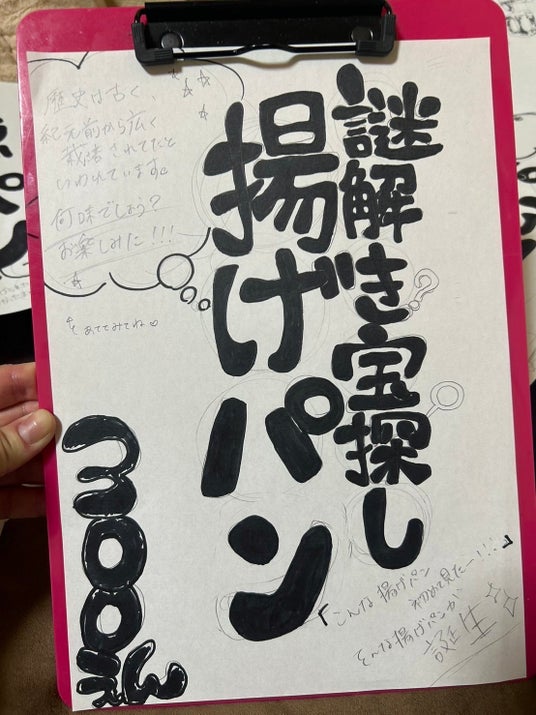 謎解き宝探し
揚げパン
歴史は古く、
紀元前から広く
栽培されてたと
いわれています。
何味でしょう?
お楽しみに!!!
あててみてね♡
moon
『こんな揚げパン
初めて見たー!!!』
そんな揚げパンが
誕生